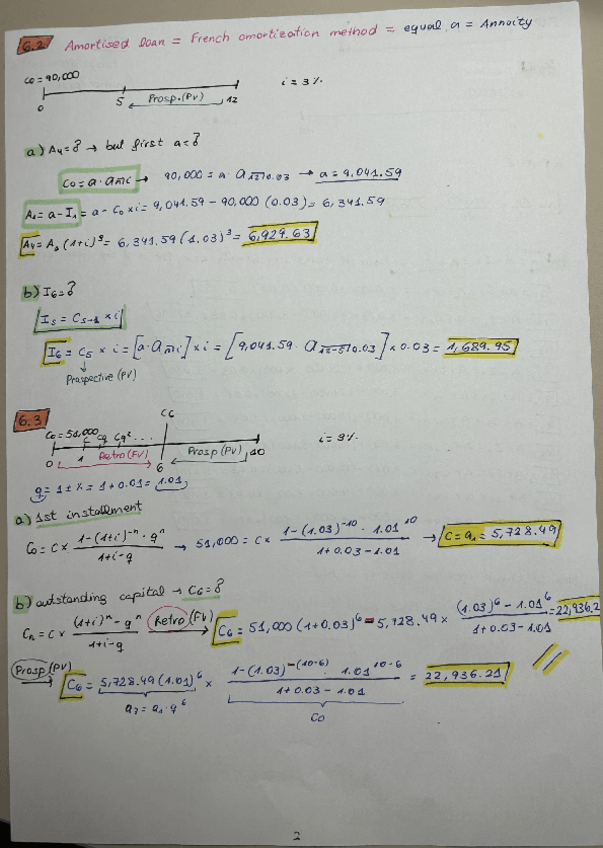 6.2 Amortised loan = French amortization method = equal a = Annuity
C₀=90,000
i=3%
0 5 Prosp.(PV) 12
a) A₄=? → but first a=?
C₀=a·a n̅|i → 90,000 = a·a 1̅2̅|0.03 → a = 9,041.59
A₁=a-I₁ = a - C₀×i = 9,041.59 - 90,000 (0.03) = 6,341.59
A₄= A₁(1+i)³ = 6,341.59 (1.03)³ = 6,929.63
b) I₆=?
I₅ = C₅₋₁ × i
I₆ = C₅ × i = [a·a n̅|i] × i = [9,041.59 · a 1̅2̅-̅5̅|0.03] × 0.03 = 1,689.95
Prospective (PV)
6.3
C₆
C₀=51,000
c cq cq² ...
i=3%
0 1 Retro(FV) 6 Prosp(PV) 10
q = 1+x = 1+0.01 = 1.01
a) 1st installment
C₀ = c × (1-(1+i)⁻ⁿ · qⁿ)/(1+i-q) → 51,000 = c × (1-(1.03)⁻¹⁰ · 1.01¹⁰)/(1+0.03-1.01) → c=a₁= 5,728.49
b) outstanding capital → C₆=?
Cₙ = c × ((1+i)ⁿ - qⁿ)/(1+i-q) Retro (FV) → C₆ = 51,000 (1+0.03)⁶ - 5,728.49 × ((1.03)⁶ - 1.01⁶)/(1+0.03-1.01) = 22,936.2
Prosp (PV) → C₆ = 5,728.49 (1.01)⁶ × (1-(1.03)⁻⁽¹⁰⁻⁶⁾ · 1.01¹⁰⁻⁶)/(1+0.03-1.01) = 22,936.21
a₇ = a₁·q⁶
C₀
2